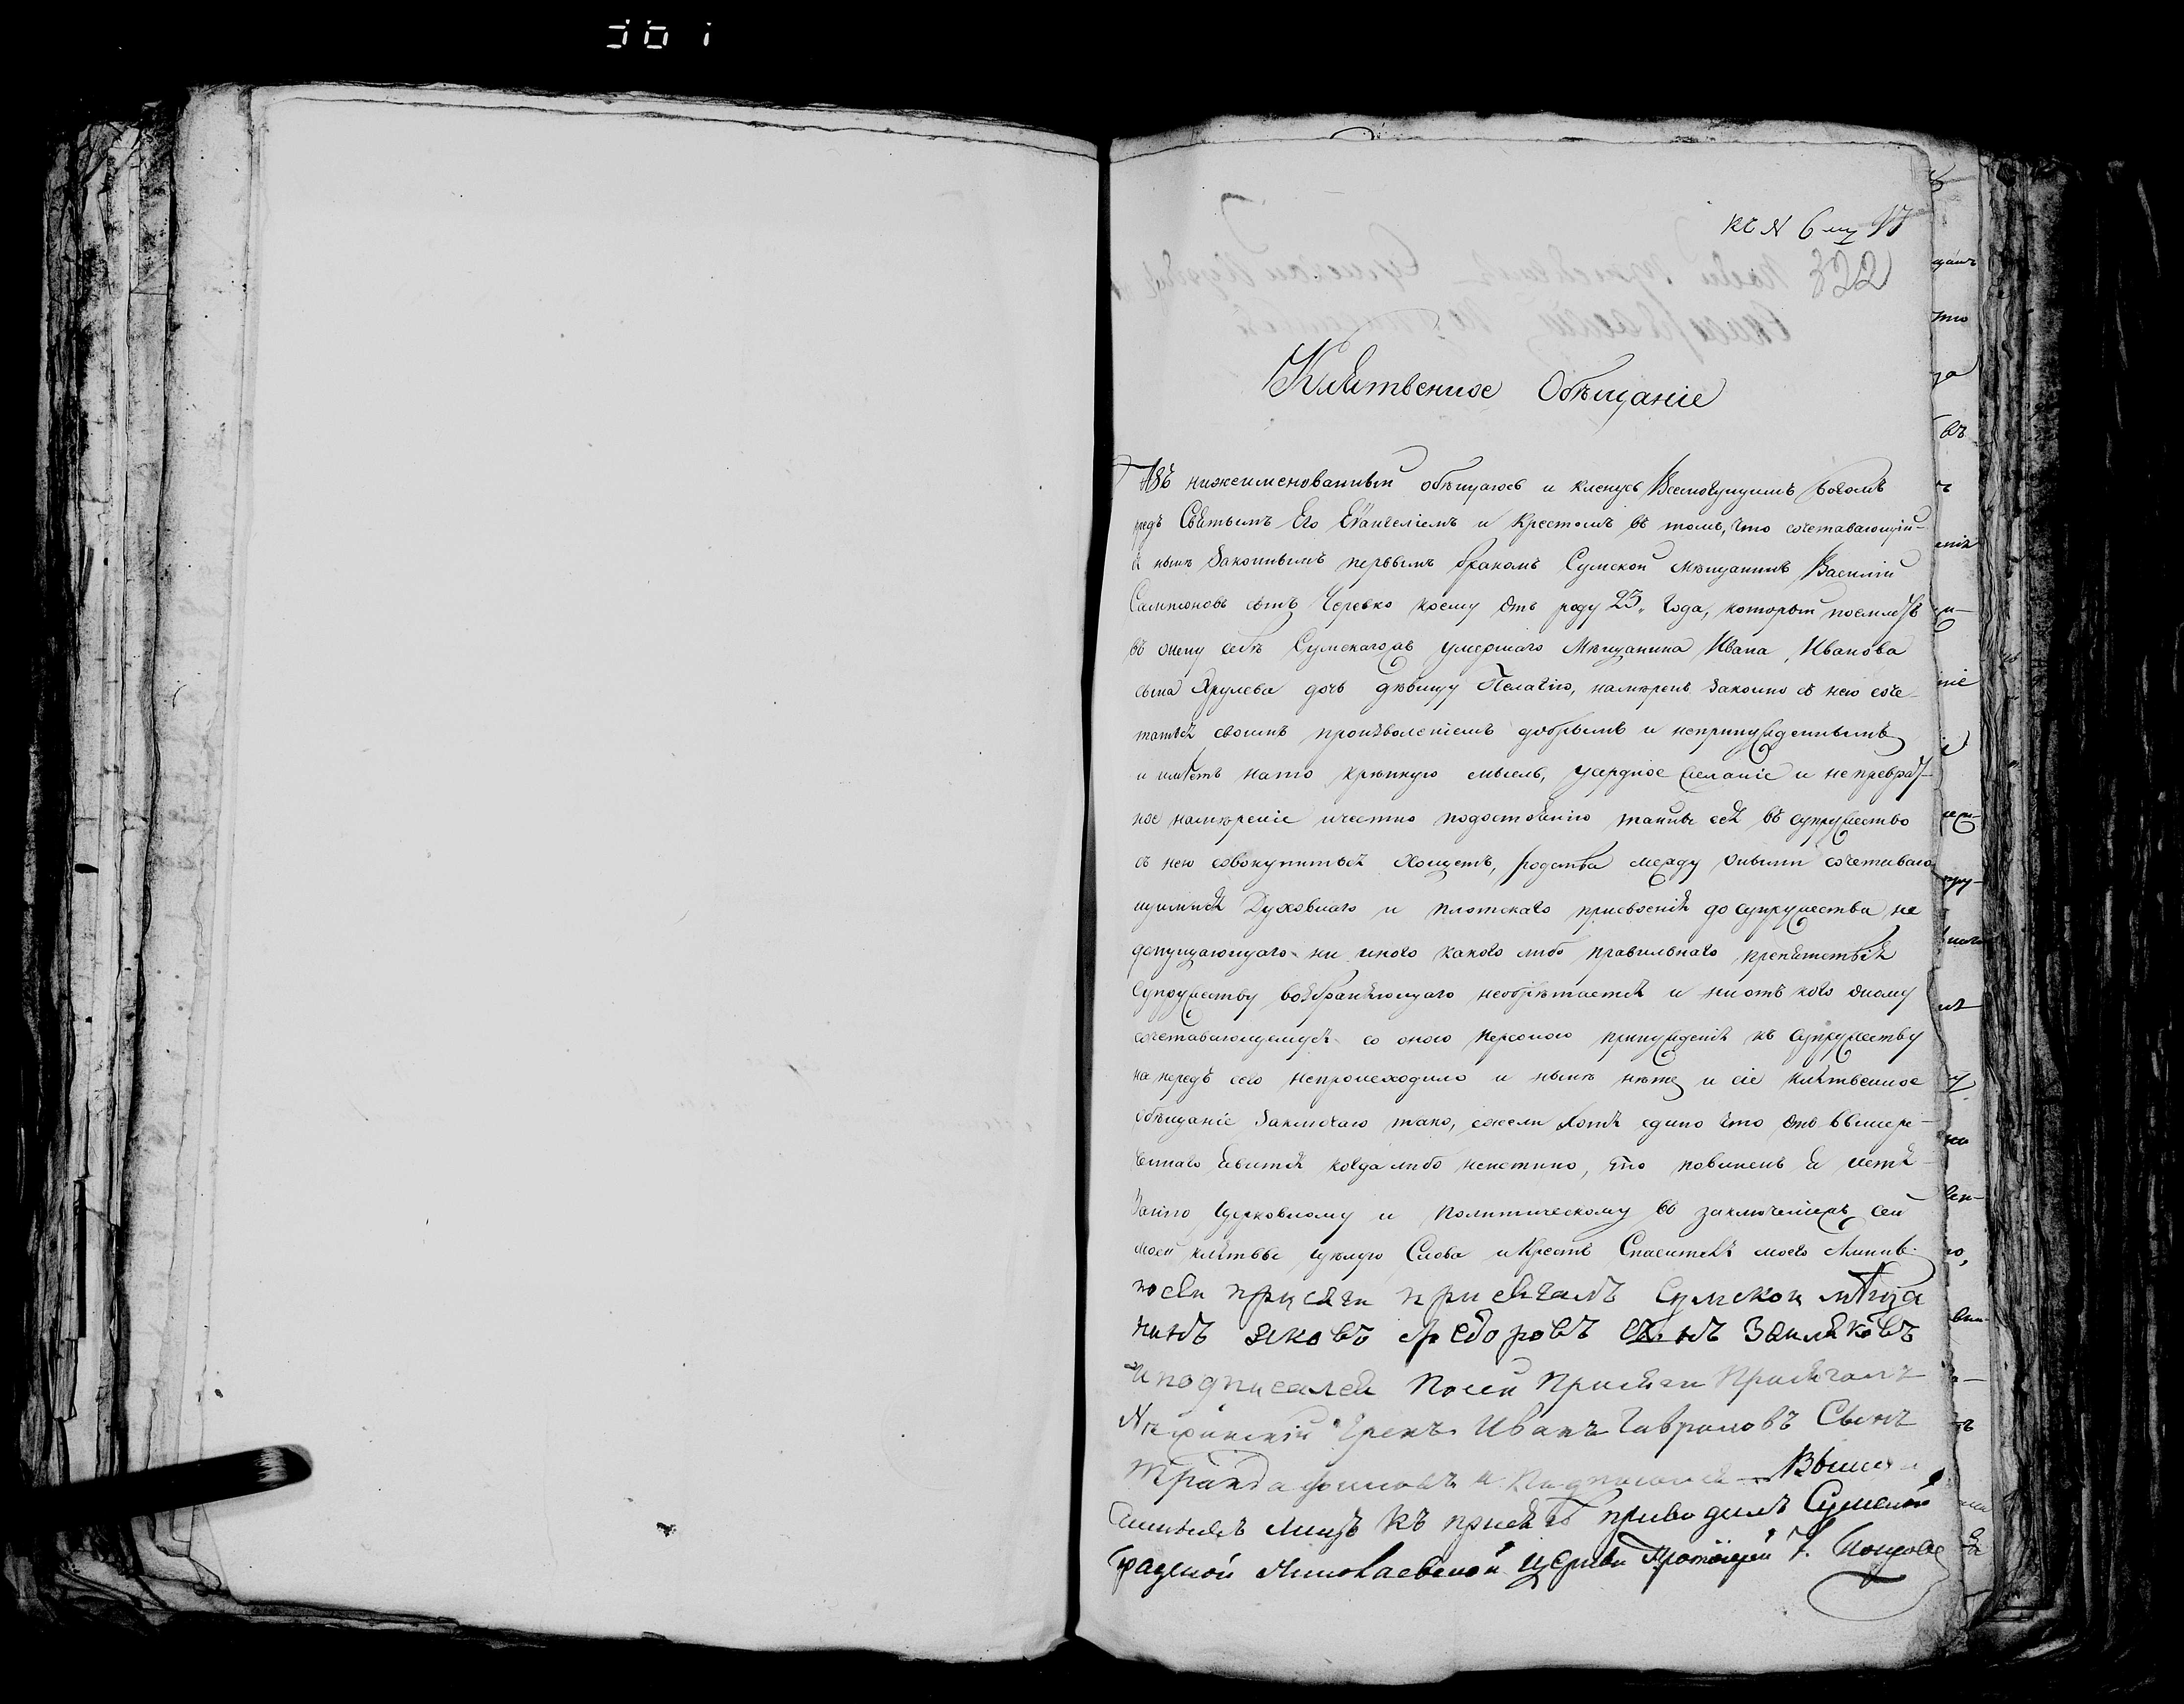 къ N 6му 17
322
Клятвенное Обѣщаніе
Азъ нижеименованный обѣщаюсь и кленусь Всемогущимъ Богомъ
предъ Святымъ Его Евангеліемъ и Крестомъ въ томъ, что сочетавающій-
я нынѣ Законнымъ первымъ бракомъ Сумской мѣщанинъ Василій
сынъ Черевко коему отъ роду 23. Года, который поемлетъ
въ жену себѣ умершаго Мѣщанина Ивана Иванова
сына дочь дѣвицу Пелагію, намѣренъ законно съ нею соче-
татьсѧ своимъ произволеніемъ добрымъ и непринужденнымъ
и имѣетъ нато крѣпкую мысль, усердное желаніе и непреврат-
ное намѣреніе ичестно подостоянію тайны сея въ супружество
съ нею совокупитьсѧ Хощетъ, родства между оными сочетаваю
щимисѧ Духовнаго и плотскаго присвоенія до супружества не
допущающаго ни иного какого либо правильнаго препятствія
Супружеству возбраняющаго необрѣтаетсѧ и ни отъ кого оному
сочетавающемусѧ со оною персоною принужденія къ супружеству
на передъ сего непроисходило и нынѣ нѣтъ, и сіе клятвенное
обѣщаніе Заключаю тако, ежели хотя едино что отъ выше ре-
ченнаго явитсѧ когда либо неистинно, то повиненъ я истя-
занію Церковному и Политическому въ заключеніехъ сей
моей клятвы цѣлую Слова и Крестъ Спасителѧ моего Аминь.
посей присяги присягалъ Сумской мѣща
нинъ яковъ федоровъ сынъ Земляковъ
и подписалсѧ Посей Присяги Присягалъ
Нѣжинскій Грекъ Иванъ Гавриловъ Сынъ
и Подписалсѧ Выше
лицъ къ присягѣ приводилъ Сумской
градской Николаевской Церкви Протоіерей